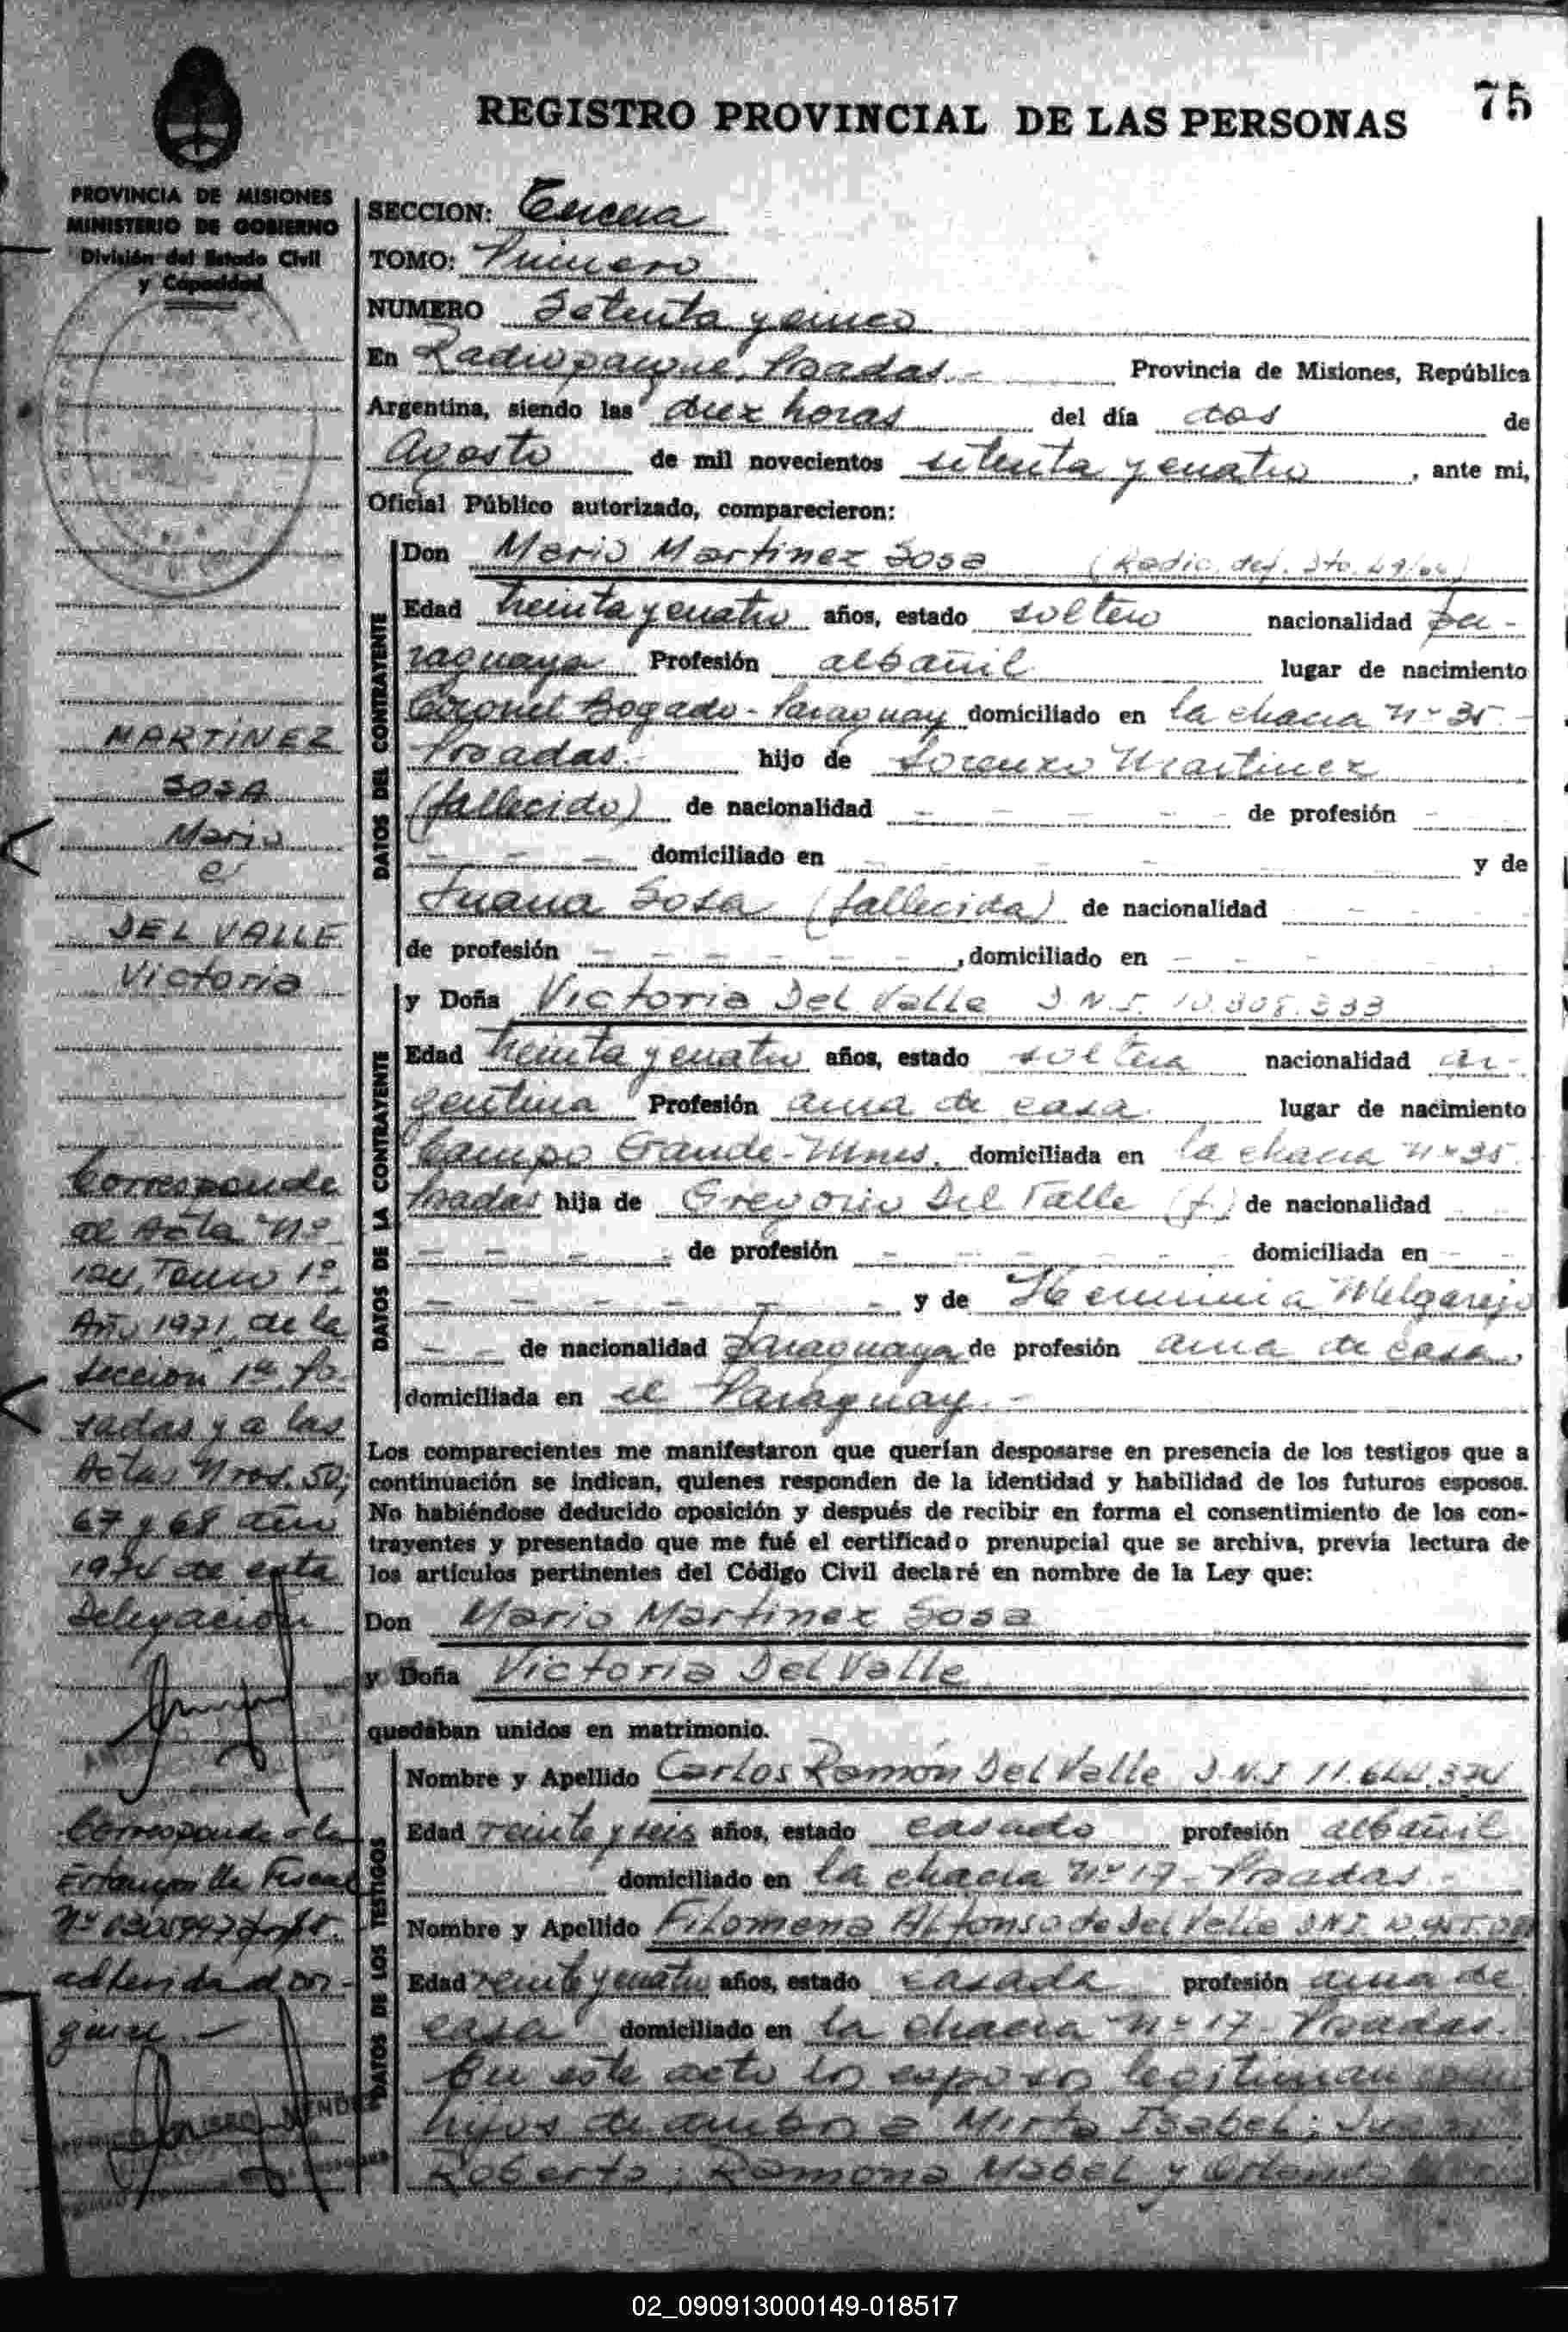 75
REGISTRO PROVINCIAL DE LAS PERSONAS
PROVINCIA DE MISIONES
MINISTERIO DE GOBIERNO
División del Estado Civil
y Capacidad
SECCION: Tercera
TOMO: Primero
NUMERO Setenta y cinco
En Radioparque, Posadas.- Provincia de Misiones, República
Argentina, siendo las diez horas del día dos de
Agosto de mil novecientos setenta y cuatro, ante mi,
Oficial Público autorizado, comparecieron:
DATOS DEL CONTRAYENTE
Don Mario Martinez Sosa (Radic. def. Dto. 49/64)
Edad treinta y cuatro años, estado soltero nacionalidad pa-
raguaya Profesión albañil lugar de nacimiento
Coronel Bogado - Paraguay domiciliado en la chacra nº 35.-
Posadas. hijo de Lorenzo Martinez
(fallecido) de nacionalidad - - - - de profesión - -
- - - domiciliado en - - - - - y de
Juana Sosa (fallecida) de nacionalidad - - -
de profesión - - - - - , domiciliado en - - - -
DATOS DE LA CONTRAYENTE
y Doña Victoria Del Valle D.N.I. 10.808.333
Edad treinta y cuatro años, estado soltera nacionalidad ar-
gentina Profesión ama de casa lugar de nacimiento
Campo Grande - Mnes. domiciliada en la chacra nº 35.
Posadas hija de Gregorio Del Valle (f.) de nacionalidad - -
- - - - de profesión - - - - - domiciliada en - -
- - - - - - - y de Herminia Melgarejo
- - de nacionalidad Paraguaya de profesión ama de casa
domiciliada en el Paraguay.-
Los comparecientes me manifestaron que querían desposarse en presencia de los testigos que a
continuación se indican, quienes responden de la identidad y habilidad de los futuros esposos.
No habiéndose deducido oposición y después de recibir en forma el consentimiento de los con-
trayentes y presentado que me fué el certificado prenupcial que se archiva, previa lectura de
los artículos pertinentes del Código Civil declaré en nombre de la Ley que:
Don Mario Martinez Sosa
y Doña Victoria Del Valle
quedaban unidos en matrimonio.
DATOS DE LOS TESTIGOS
Nombre y Apellido Carlos Ramón Del Valle D.N.I 11.644.374
Edad veinte y seis años, estado casado profesión albañil
domiciliado en la chacra nº 17 - Posadas.-
Nombre y Apellido Filomena Alfonso de Del Valle D.N.I.
Edad veinte y cuatro años, estado casada profesión ama de
casa domiciliado en la chacra nº 17 - Posadas.
En este acto los esposos legitiman como
hijos de ambos a Mirta Isabel; Juan
Roberto; Ramona Mabel y Orlando
MARTINEZ
SOSA
Mario
c/
DEL VALLE
Victoria
Corresponde
al Acta Nº
124, Tomo 1º,
Año 1971, de la
Sección 1ra. Po-
sadas y a las
Actas Nros. 50;
67 y 68 año
1974 de esta
Delegación
Corresponde a la
Estampilla Fiscal
Nº
adherida al ori-
ginal.-
MENDEZ
02_090913000149-018517